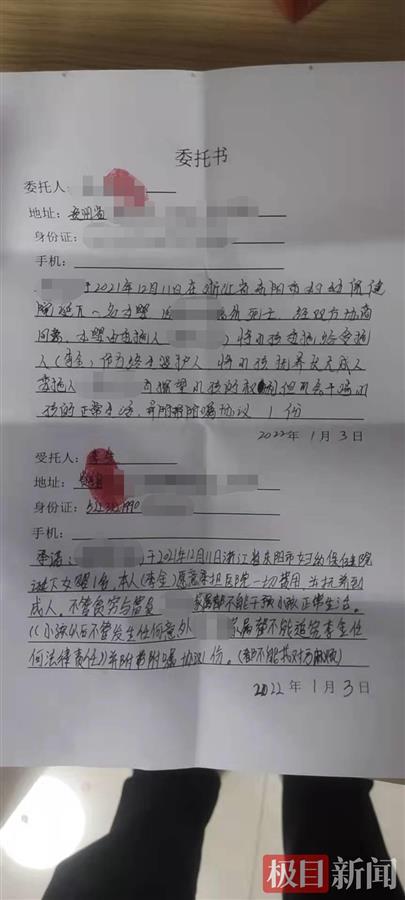 委托书
委托人:
地址:贵州省
身份证:
手机:
于2021年12月11日在浙江省东阳市妇幼保健
院诞下一名女婴 经双方协商
同意,女婴由委托人 将小孩委托给受托
人(李全)作为终身监护人 将小孩抚养长大成人
委托人 有探望小孩的权利但不会干涉小
孩的正常生活 并附带附嘱协议1份
2022年1月3日
受托人:李全
地址:
身份证:
手机:
承诺: 于2021年12月11日浙江省东阳市妇幼保健院
诞下女婴1名,本人(李全)愿意承担医院一切费用 抚养到
成人,不管贫穷与富贵 家属都不能干预小孩正常生活,
(《小孩以后不管发生任何意外 家属都不能追究李全任
何法律责任》)并附带附嘱协议1份。(都不能找对方麻烦)
2022年1月3日
极目新闻